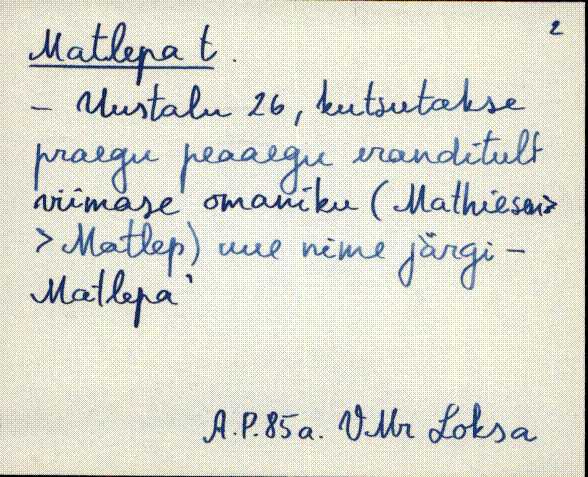 2
Matlepa t.
- Uustalu 26, kutsutakse
praegu peaaegu eranditult
viimase omaniku (Mathiesen>
> Matlep) uue nime järgi -
Matlepa'
A.P. 85a. VMr Loksa